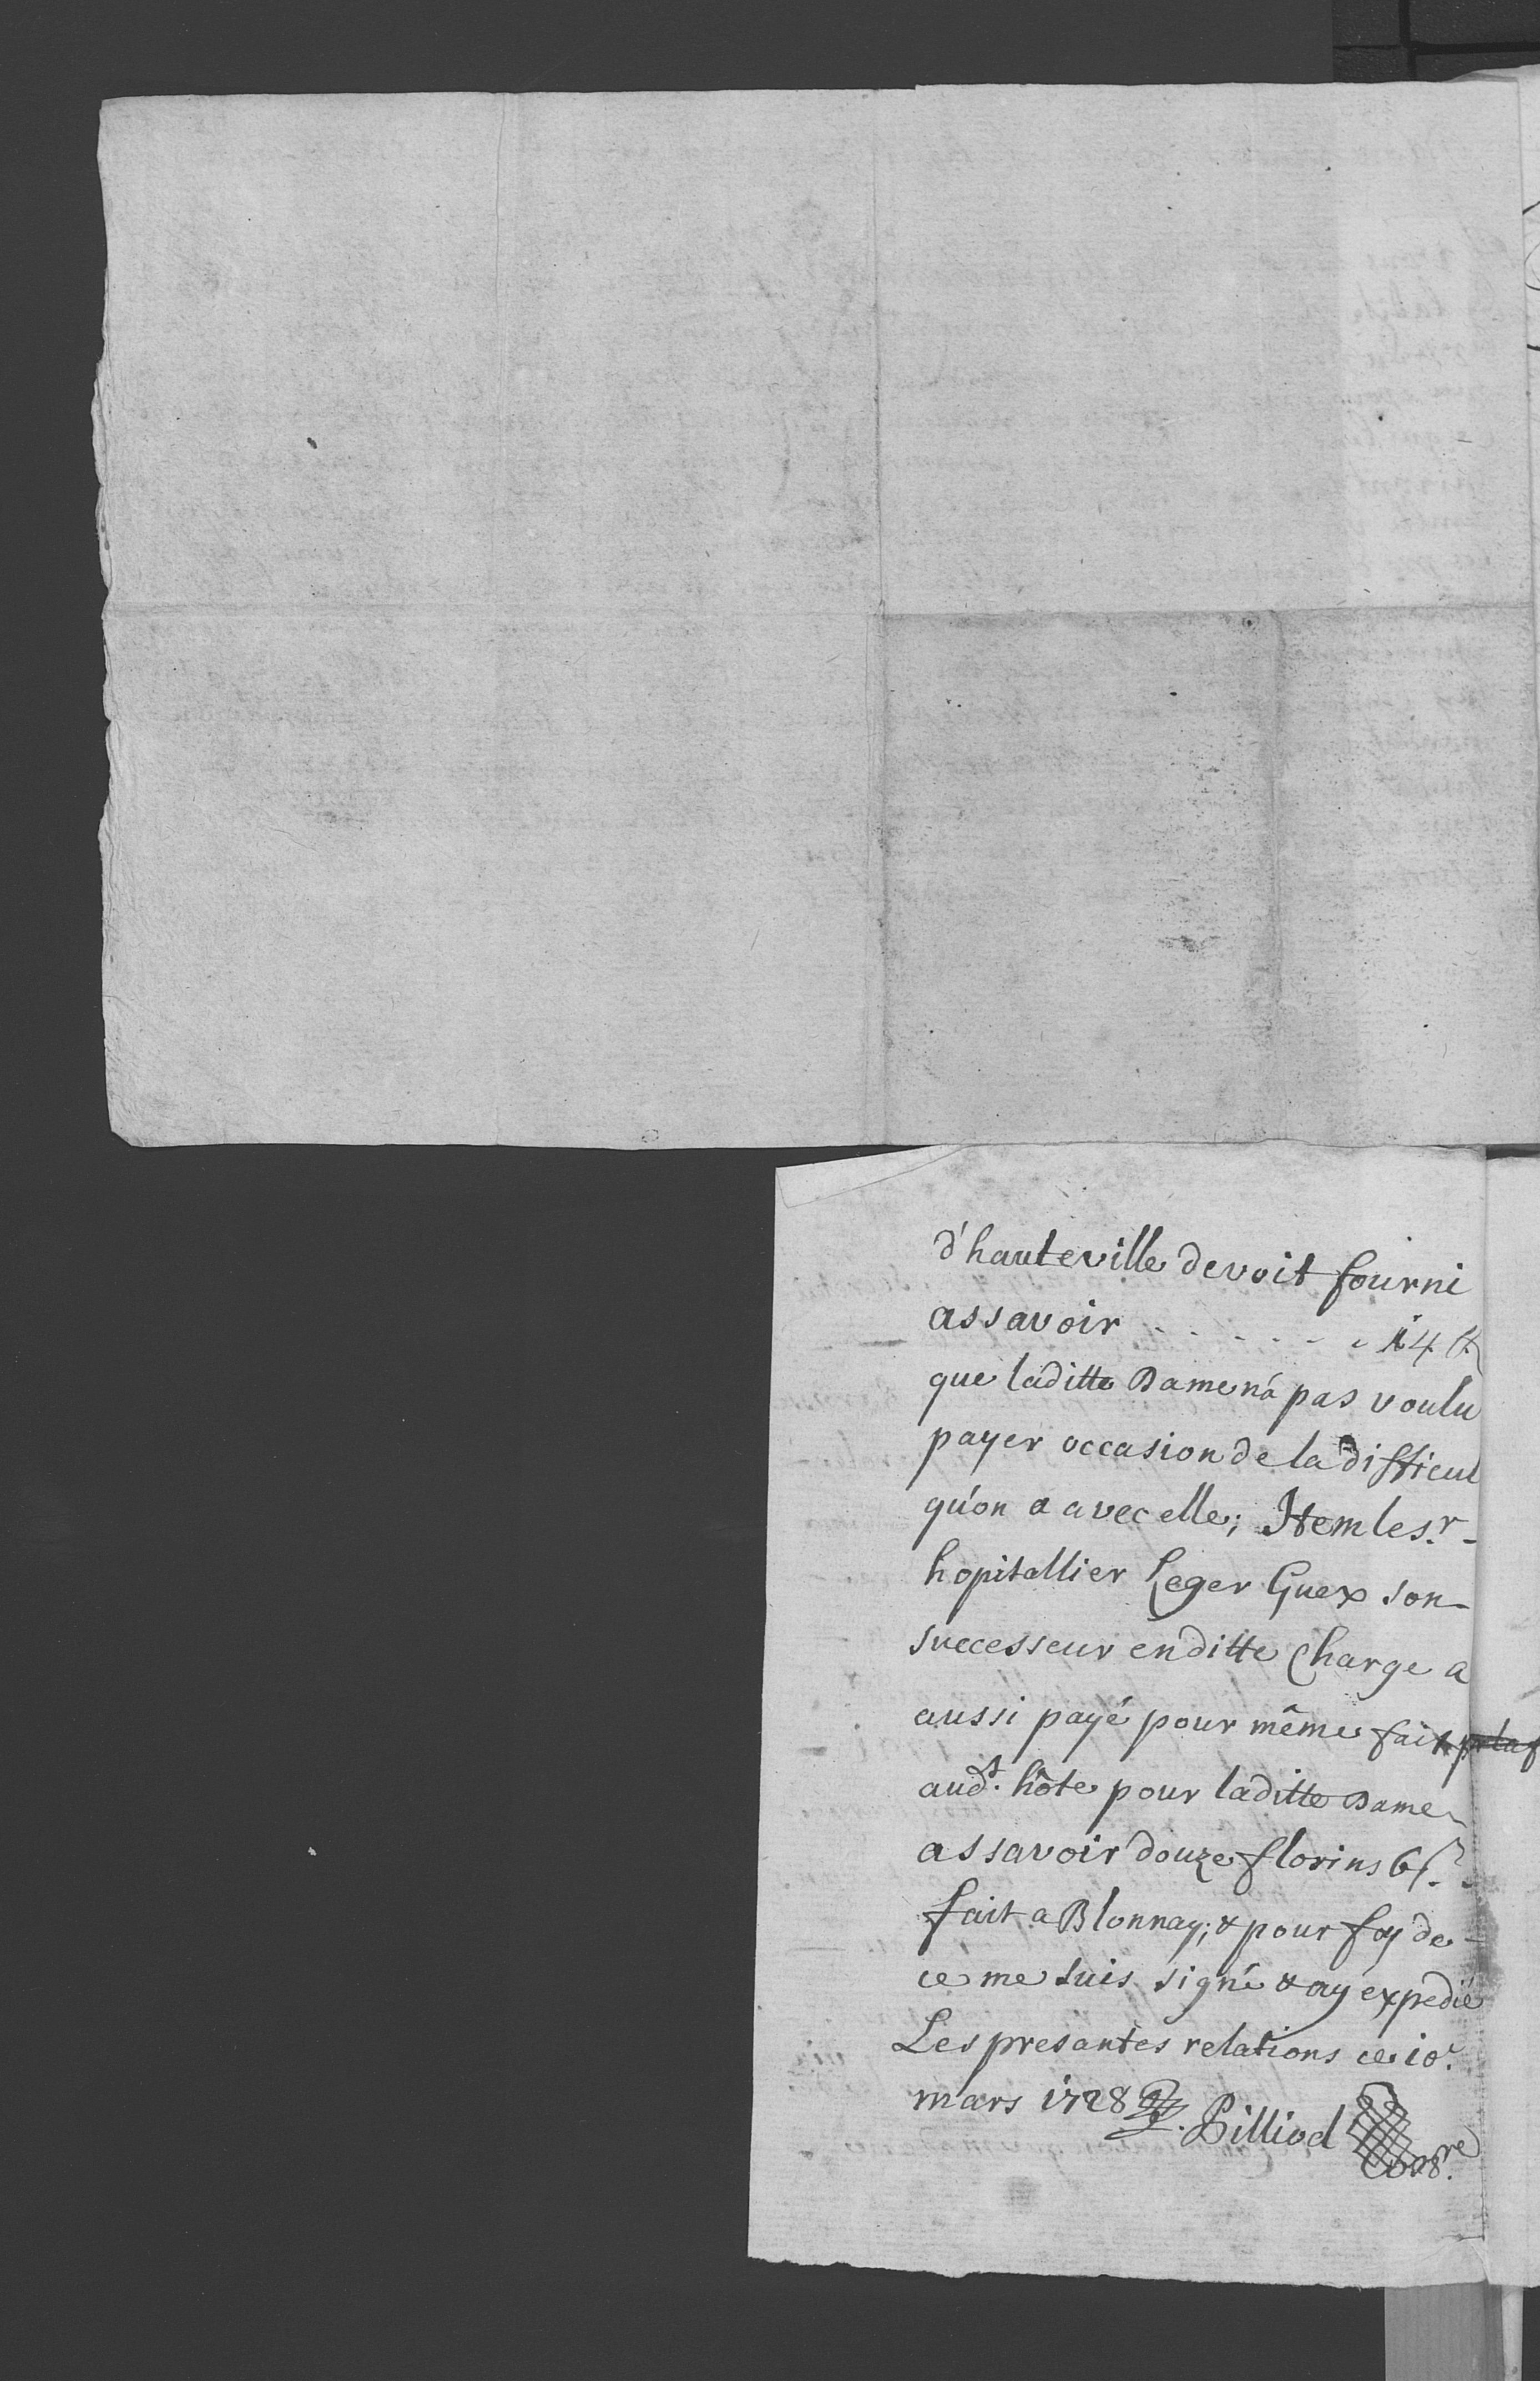 d'hauteville devoit fourni
assavoir . . . . . . . 14 ff
que laditte Dame n'a pas voulu
payer occasion de la difficul
qu'on a avec elle; Item le s.r
hopitallier Leger Guex son
successeur en ditte Charge a
aussi payé pour même fait
aud.t hôte pour laditte Dame
assavoir douze florins 6 s.
fait a Blonnay; & pour foy de
ce me suis signé & ay expedié
Les presantes relations ce 10.e
mars 1728
Pilliod